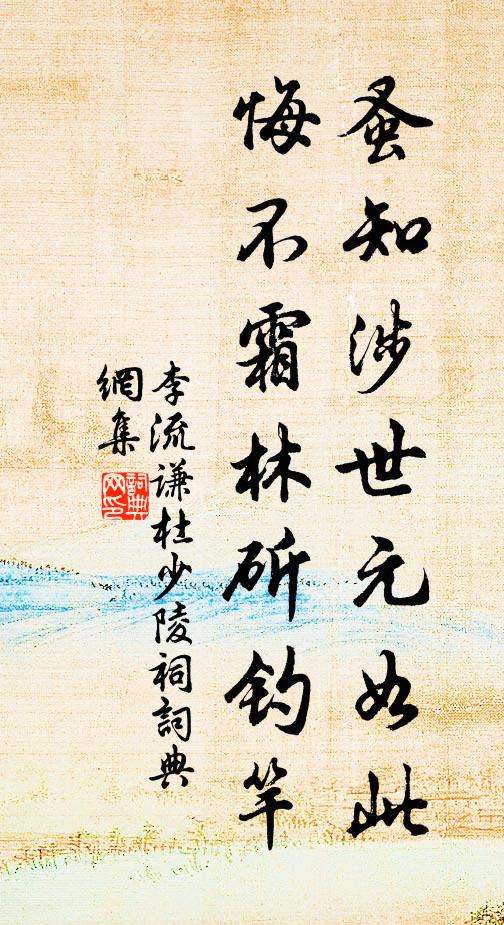 蚤知涉世元如此
悔不霜林斫钓竿
李流谦杜少陵祠詞典
網集
詞典網印